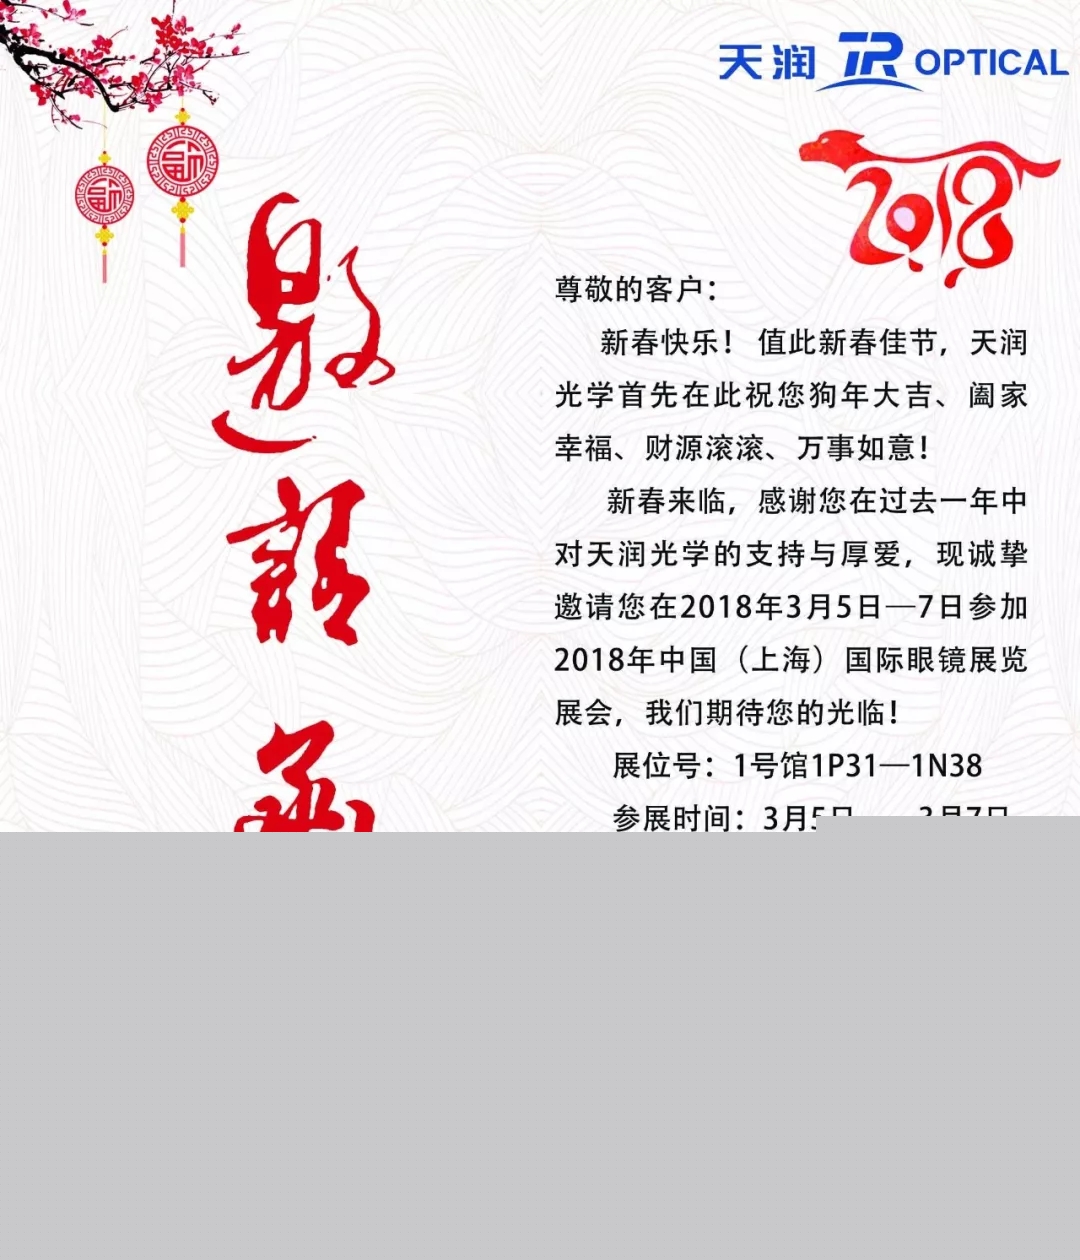 天润 TR OPTICAL
2018
邀请函
尊敬的客户：
新春快乐！ 值此新春佳节，天润
光学首先在此祝您狗年大吉、阖家
幸福、财源滚滚、万事如意！
新春来临，感谢您在过去一年中
对天润光学的支持与厚爱，现诚挚
邀请您在2018年3月5日—7日参加
2018年中国（上海）国际眼镜展览
展会，我们期待您的光临！
展位号：1号馆1P31—1N38
参展时间：3月5日 3月7日